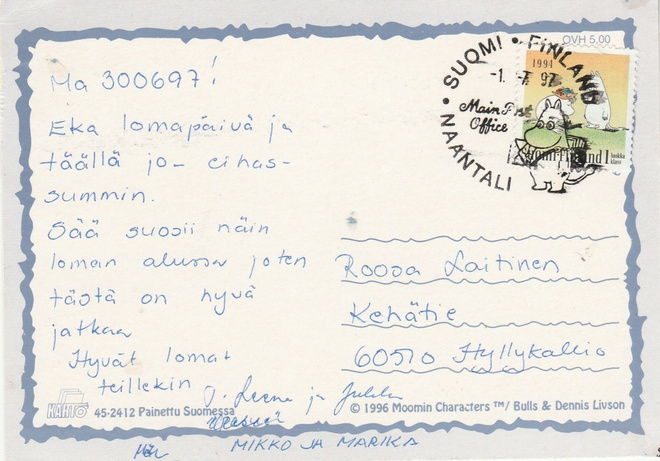 Ma 300697!
Eka lomapäivä ja
täällä jo - eihas-
summin.
Sää suosii näin
loman alussa joten
tästä on hyvä
jatkaa
Hyvät lomat
teillekin
Leena ja Jukka
MIKKO JA MARIKA
QVH 5,00
SUOMI • FINLAND
1994
-1. -7. 97
Main Post
Office
NAANTALI
Suomi Finland 1 luokka
klass
Roosa Laitinen
Kehätie
60510 Hyllykallio
KARTO 45-2412 Painettu Suomessa
© 1996 Moomin Characters ™/ Bulls & Dennis Livson